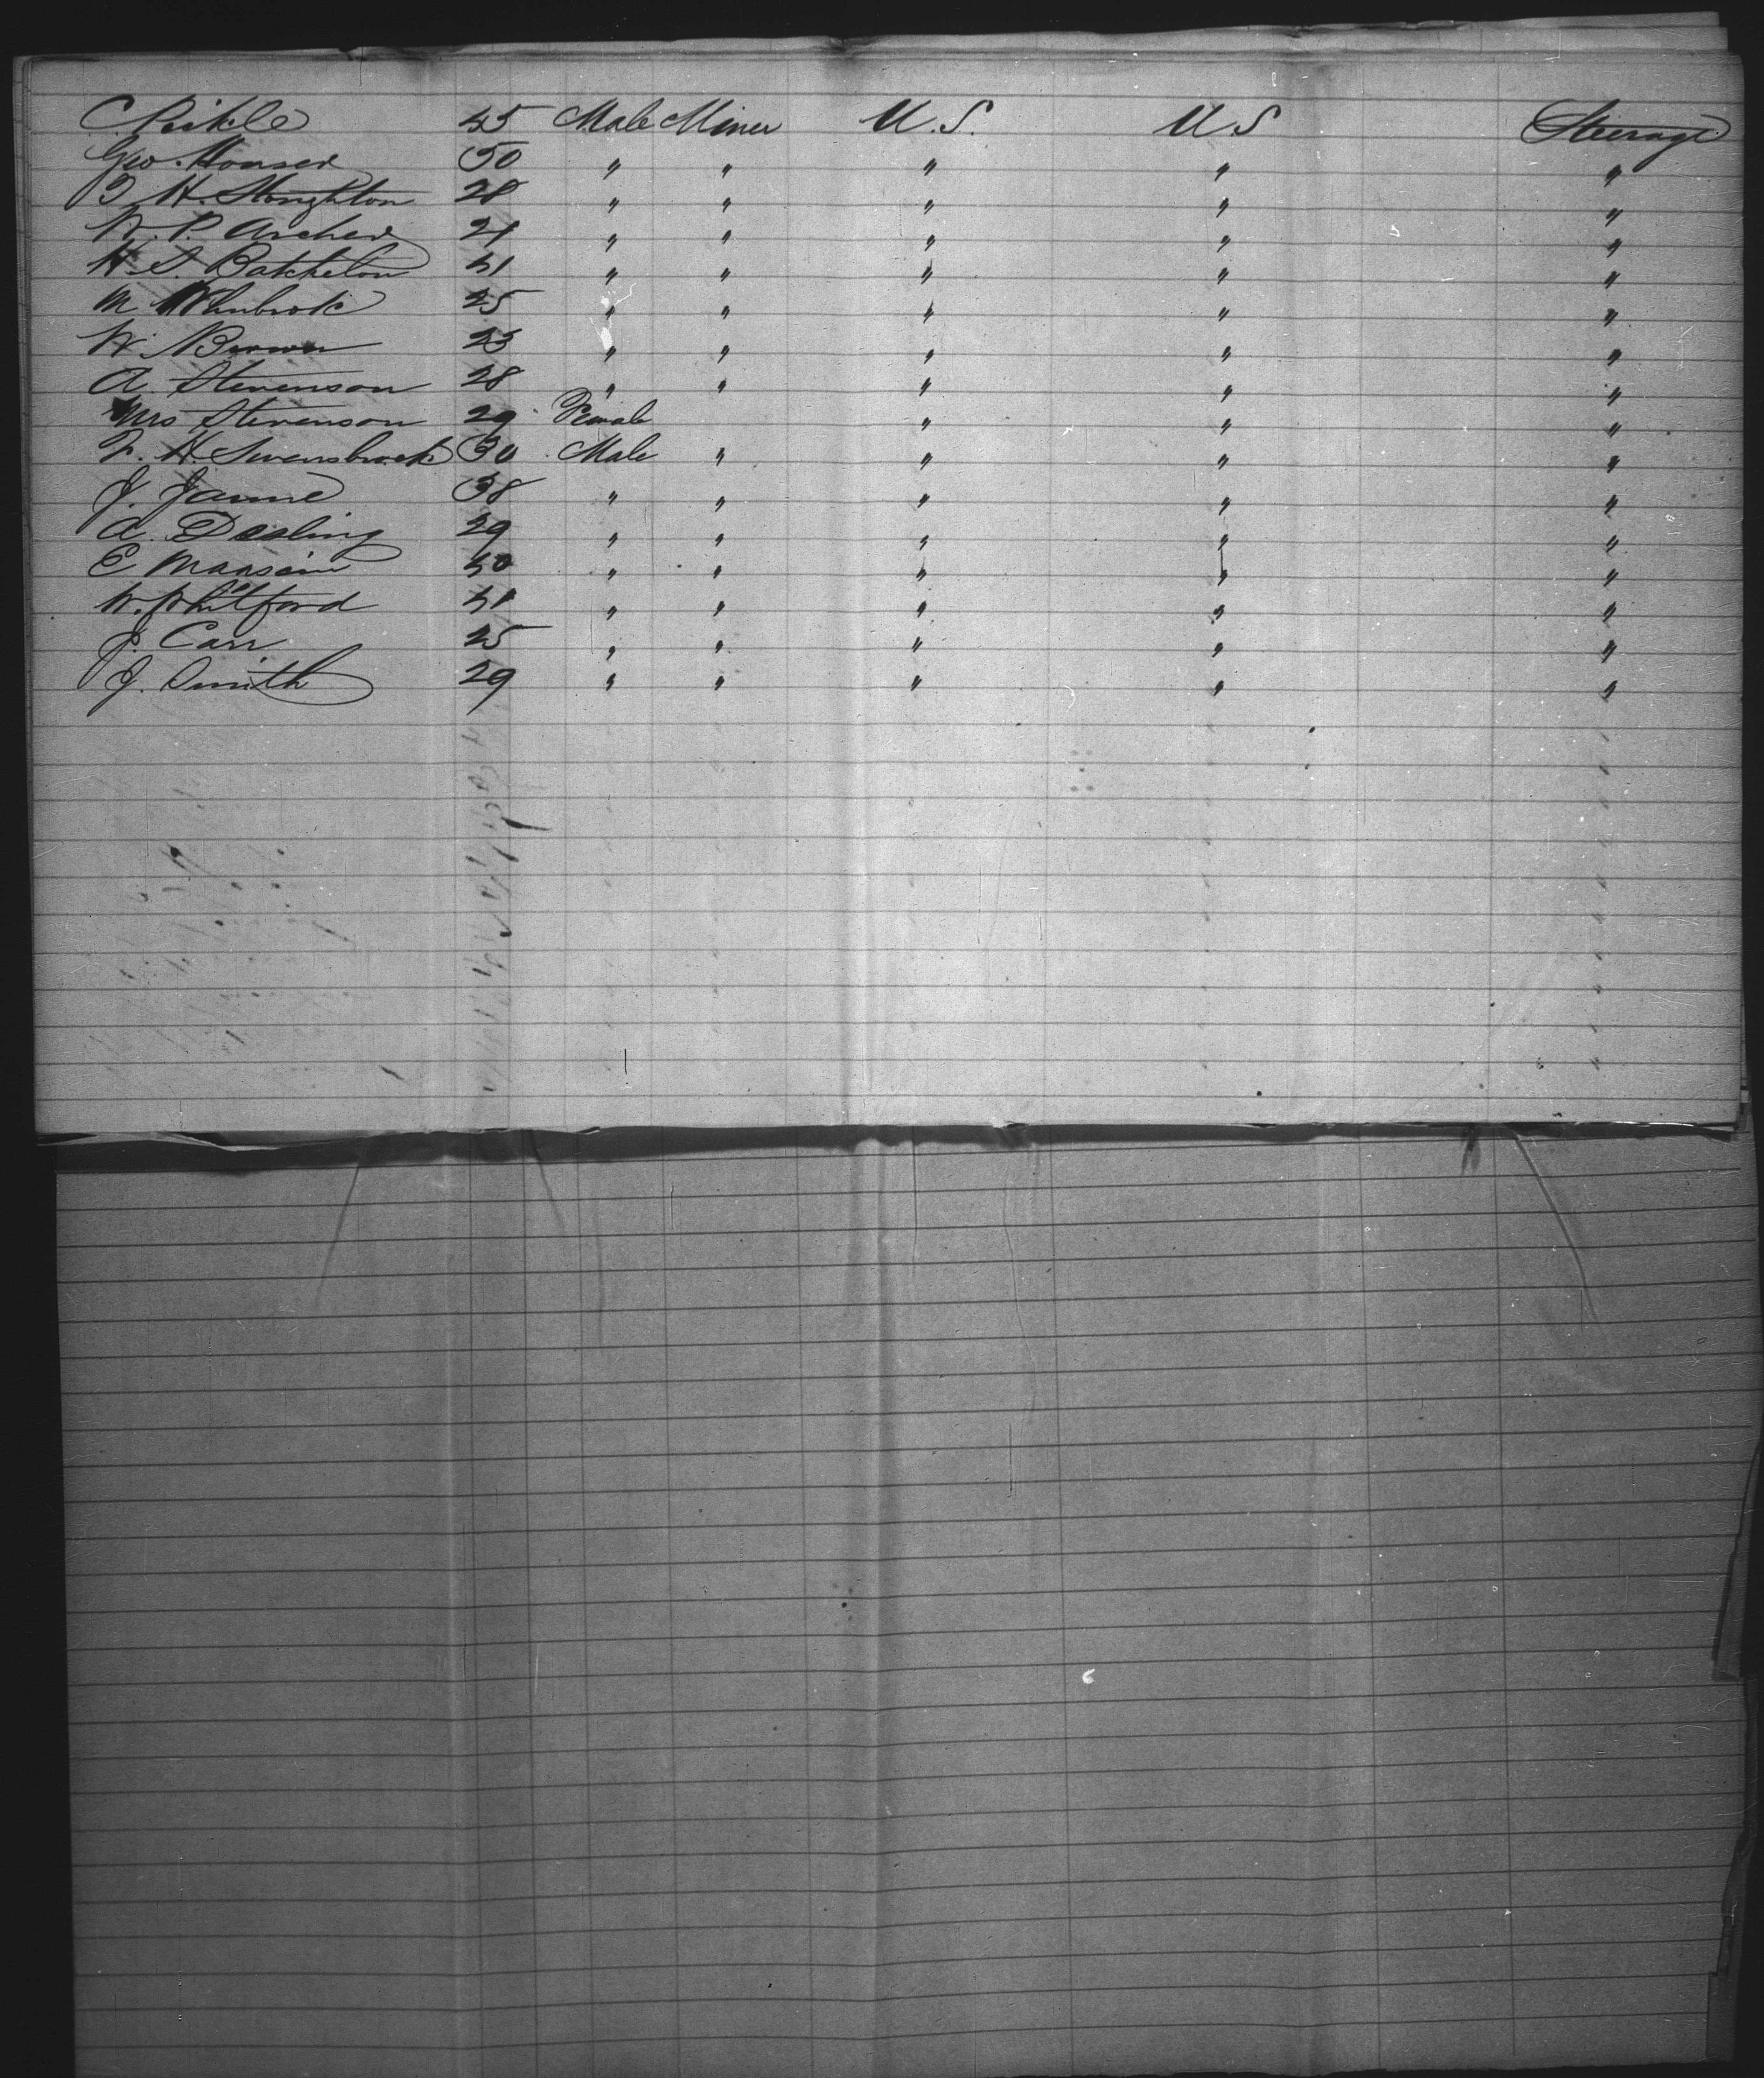 C. Pickle 45 Male Miner U.S. U.S Steerage
Geo. Houser 50 " " " " "
T. H. Stoughton 28 " " " " "
W. P. Archer 21 " " " " "
H. S. Batchelou 41 " " " " "
M. 25 " " " " "
W. Brown 23 " " " " "
A. Stevenson 28 " " " " "
Mrs Stevenson 29 Female " " "
H. Swensbrock 30 Male " " " "
J. Jamie 38 " " " " "
A. Desling 29 " " " " "
E 40 " " " " "
W. Whitford 41 " " " " "
J. Carr 25 " " " " "
J. Smith 29 " " " " "